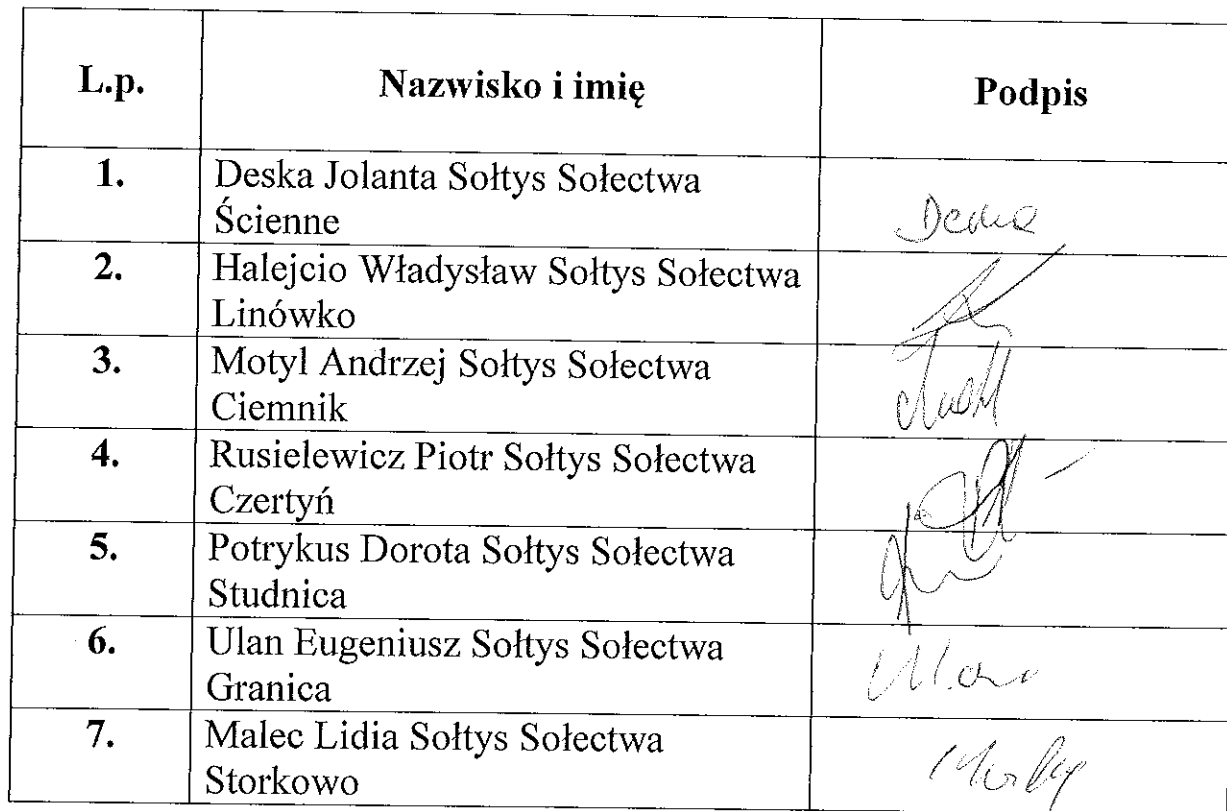 L.p. Nazwisko i imię Podpis
1. Deska Jolanta Sołtys Sołectwa
Ścienne
2. Halejcio Władysław Sołtys Sołectwa
Linówko
3. Motyl Andrzej Sołtys Sołectwa
Ciemnik
4. Rusielewicz Piotr Sołtys Sołectwa
Czertyń
5. Potrykus Dorota Sołtys Sołectwa
Studnica
6. Ulan Eugeniusz Sołtys Sołectwa
Granica
7. Malec Lidia Sołtys Sołectwa
Storkowo